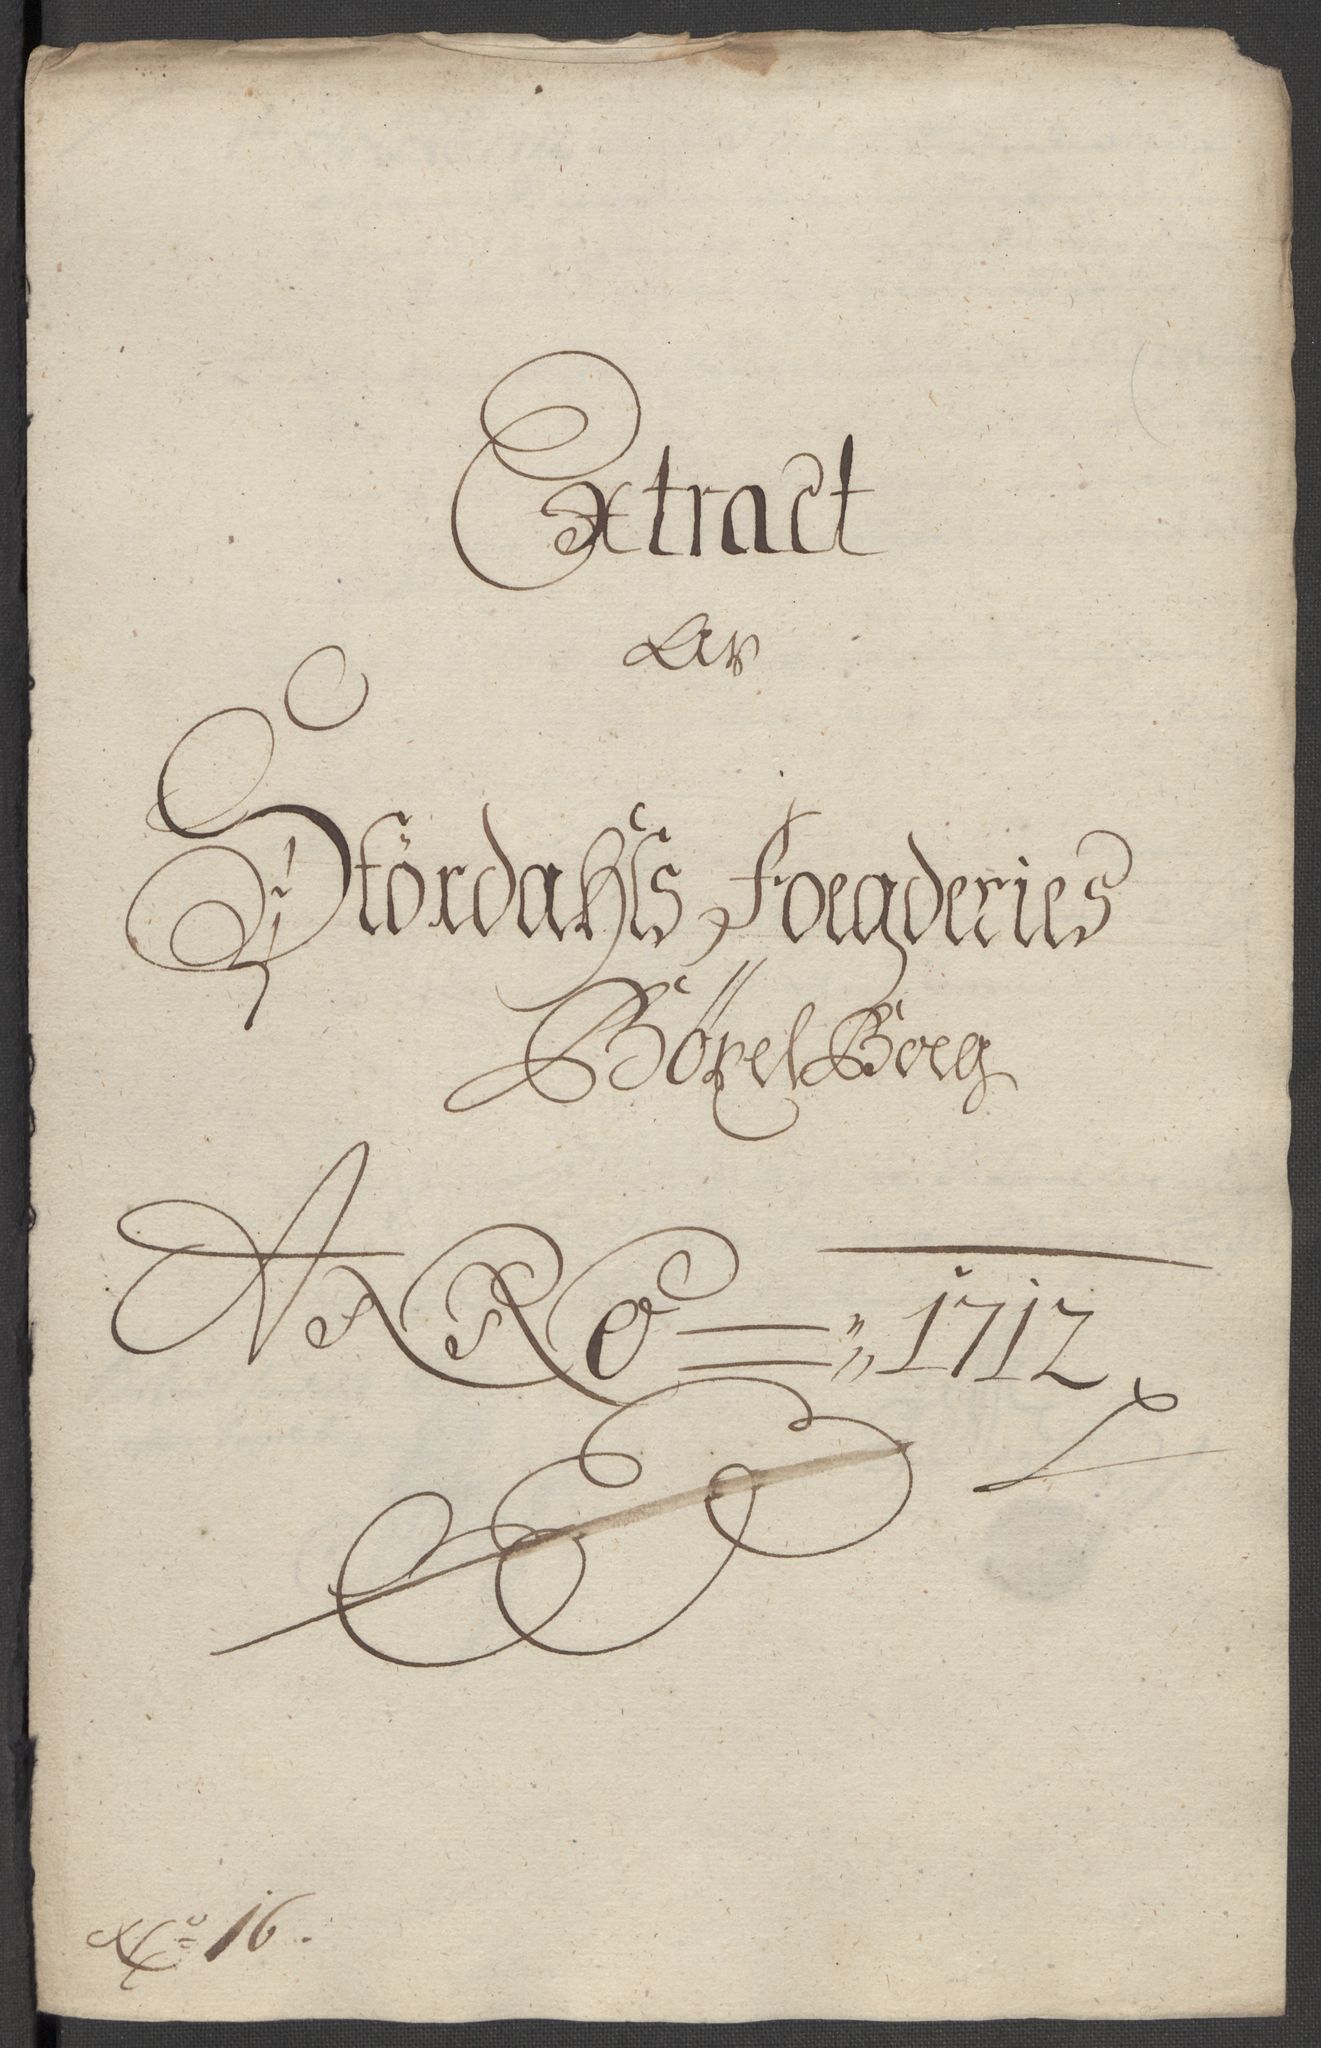 Extract
Av
Stördahls Foegderies
Böxel Boeg
ANNO = 1712
No 16.